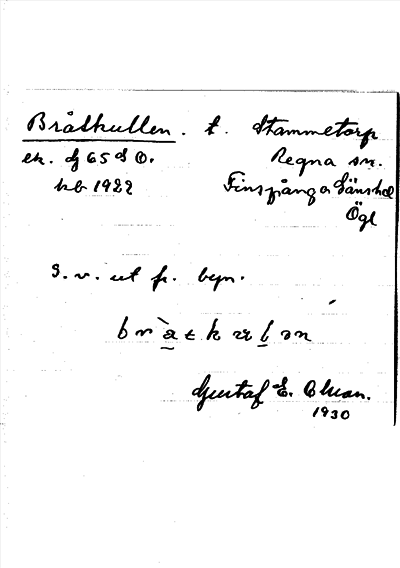 Bråtkullen. t. Stammetorp
ek. dj 65 d Ö. Regna sn.
kb 1922 Finspånga Länshd
Ögl
S. v. ut fr. byn.
Gustaf E. Olsson.
1930